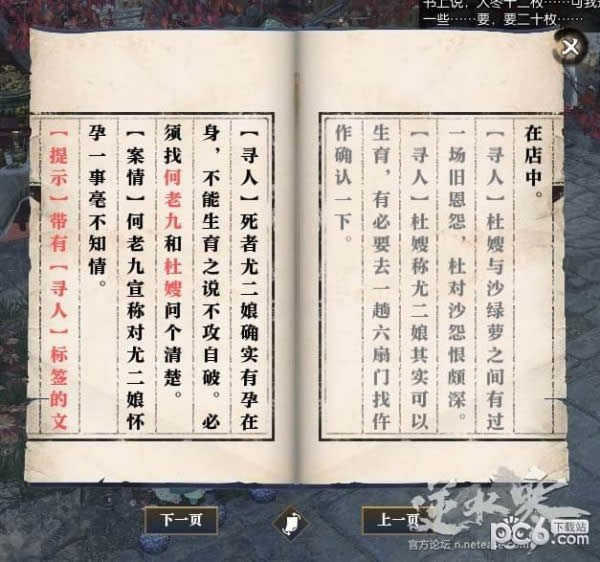 书上说，人冬十二枚……可我是
一些……要，要二十枚……
在店中。
【寻人】杜嫂与沙绿萝之间有过
一场旧恩怨，杜对沙怨恨颇深。
【寻人】杜嫂称尤二娘其实可以
生育，有必要去一趟六扇门找仵
作确认一下。
【寻人】死者尤二娘确实有孕在
身，不能生育之说不攻自破。必
须找何老九和杜嫂问个清楚。
【案情】何老九宣称对尤二娘怀
孕一事毫不知情。
【提示】带有【寻人】标签的文
下一页
上一页
逆水寒
官方论坛 n.netease.com
pc6下载站
.com